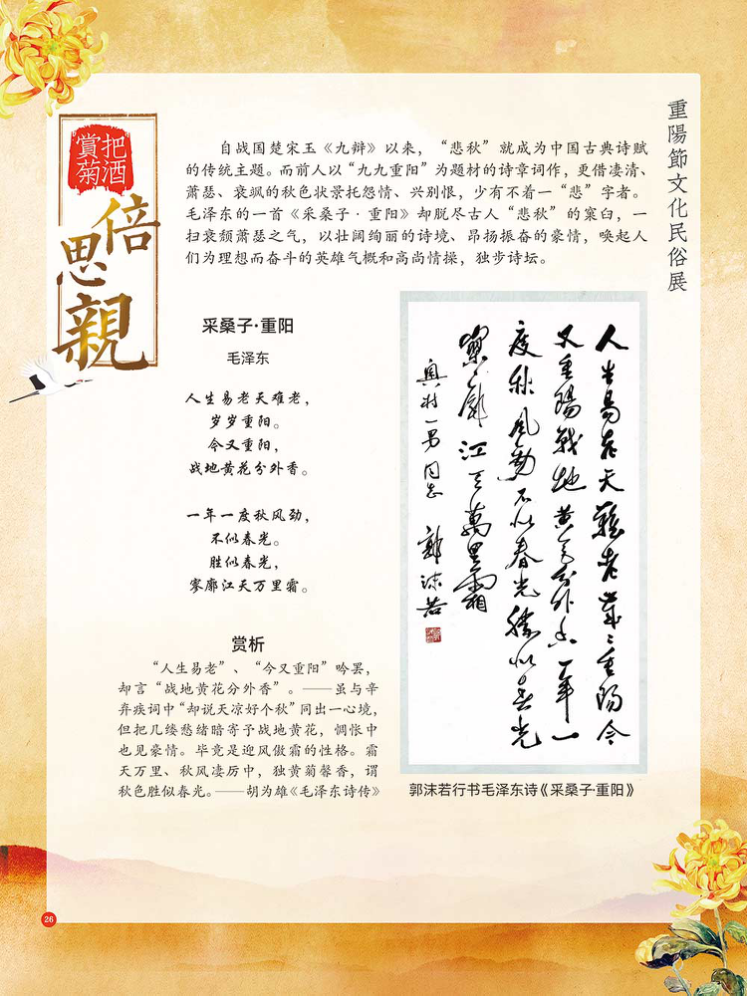 重陽節文化民俗展
把酒
賞菊
倍
思
親
自战国楚宋玉《九辩》以来，“悲秋”就成为中国古典诗赋
的传统主题。而前人以“九九重阳”为题材的诗章词作，更借凄清、
萧瑟、衰飒的秋色状景托怨情、兴别恨，少有不着一“悲”字者。
毛泽东的一首《采桑子·重阳》却脱尽古人“悲秋”的窠臼，一
扫衰颓萧瑟之气，以壮阔绚丽的诗境、昂扬振奋的豪情，唤起人
们为理想而奋斗的英雄气概和高尚情操，独步诗坛。
采桑子·重阳
毛泽东
人生易老天难老，
岁岁重阳。
今又重阳，
战地黄花分外香。
一年一度秋风劲，
不似春光。
胜似春光，
寥廓江天万里霜。
赏析
“人生易老”、“今又重阳”吟罢，
却言“战地黄花分外香”。——虽与辛
弃疾词中“却说天凉好个秋”同出一心境，
但把几缕愁绪暗寄予战地黄花，惆怅中
也见豪情。毕竟是迎风傲霜的性格。霜
天万里、秋风凄厉中，独黄菊馨香，谓
秋色胜似春光。——胡为雄《毛泽东诗传》
人生易老天難老歲〻重陽今
又重陽戰地黄花分外香一年一
度秋風勁不似春光勝似春光
寥廓江天萬里霜
奥村一男同志
郭沫若
郭沫若行书毛泽东诗《采桑子重阳》
26